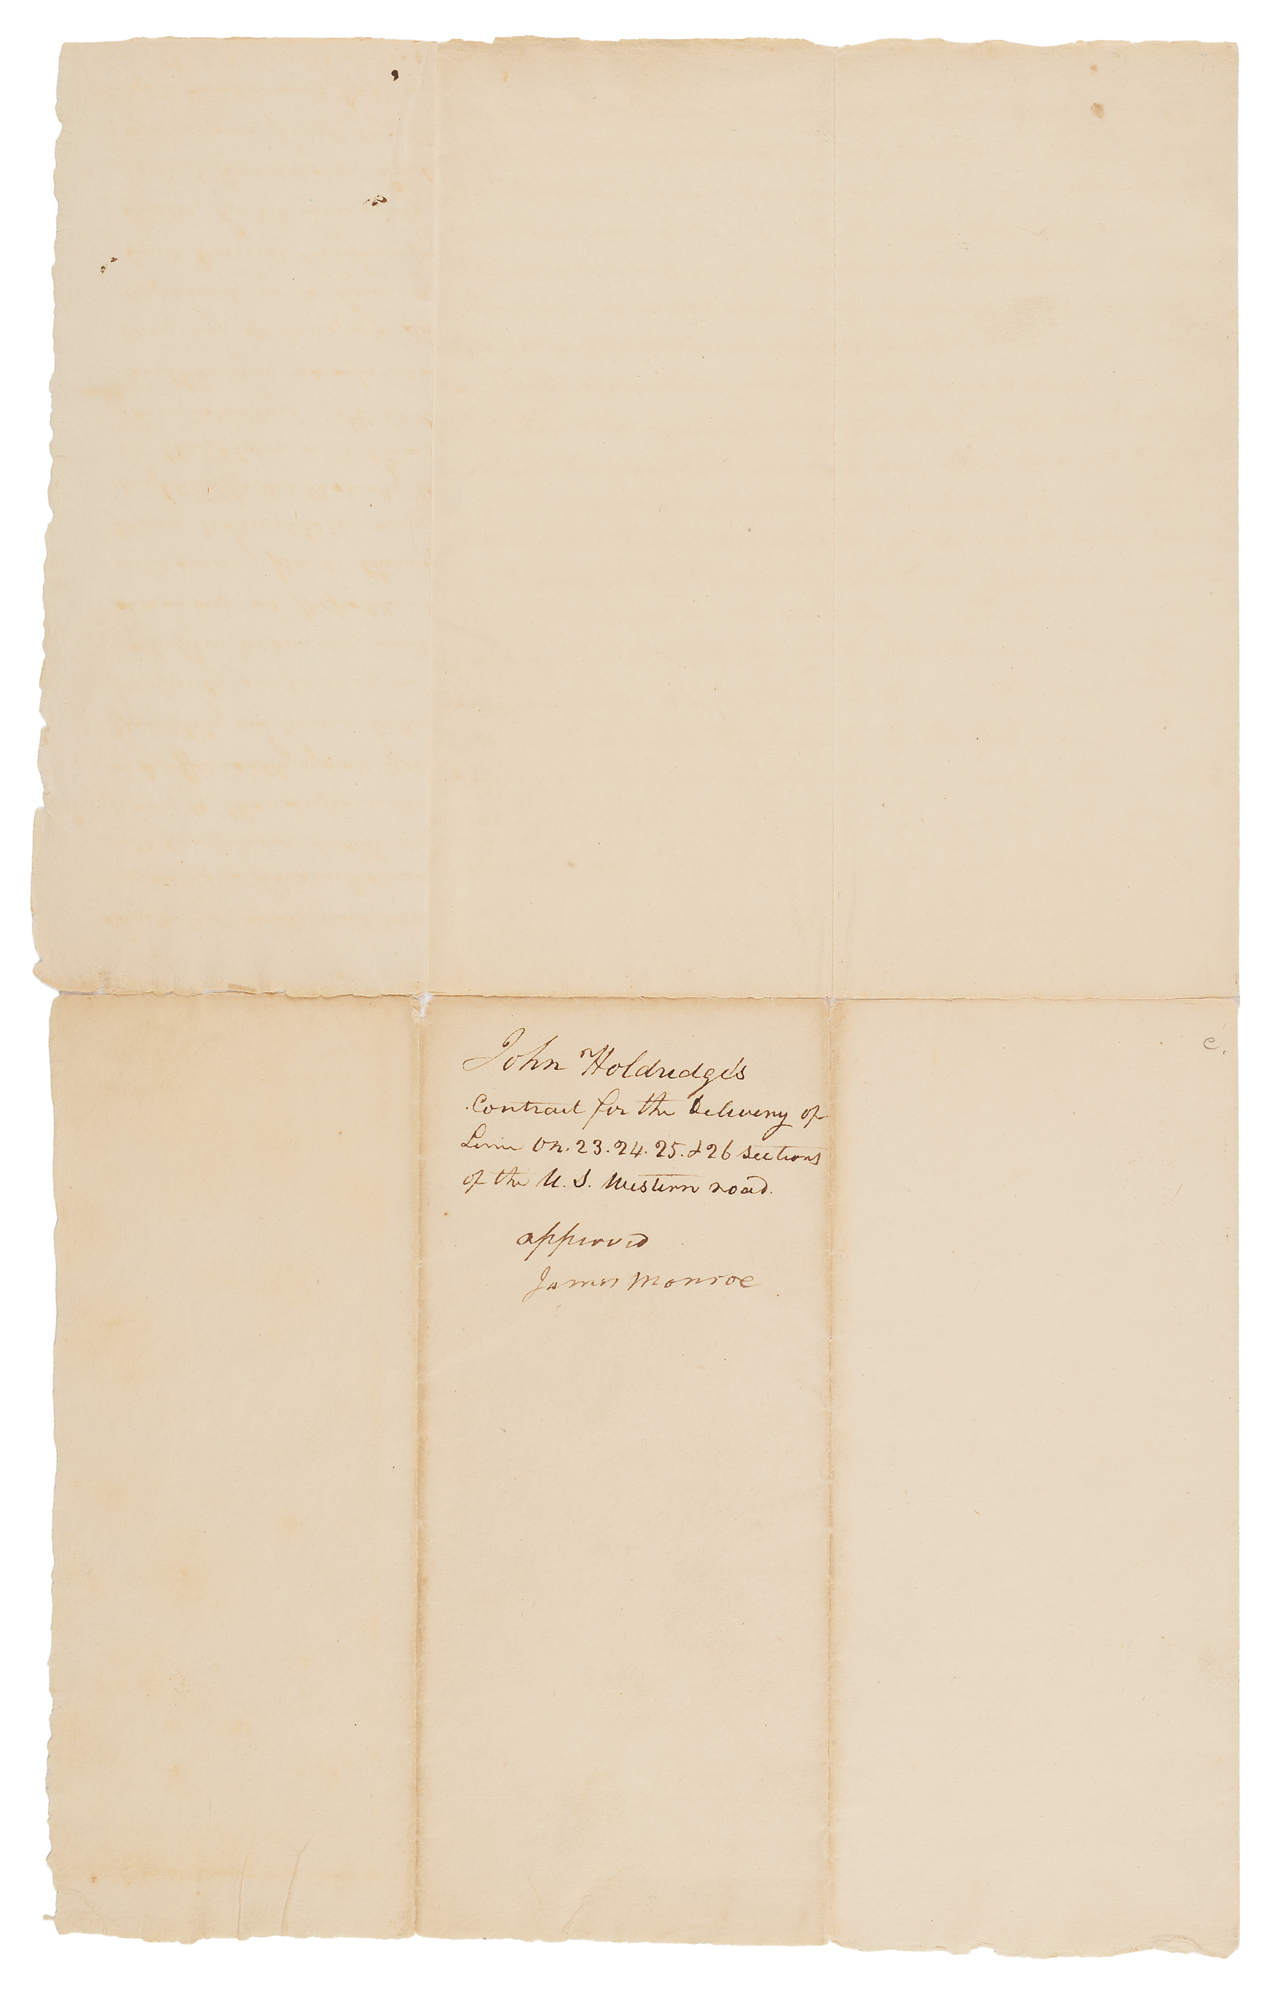 John Holdredge's
Contract for the Delivery of
Lime on. 23. 24. 25. & 26 sections
of the U. S. Western road.
approved
James Monroe
c.